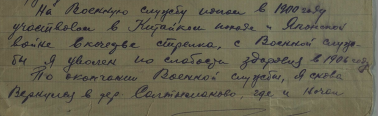 На Военную службу пошел в 1900 году
участвовал в Китайском походе и Японской
войне в качестве стрелка, с Военной служ-
бы Я уволен по слабости здоровья в 1906 году.
По окончании Военной службы, Я снова
Вернулся в дер. Солтаньяново, где и начал